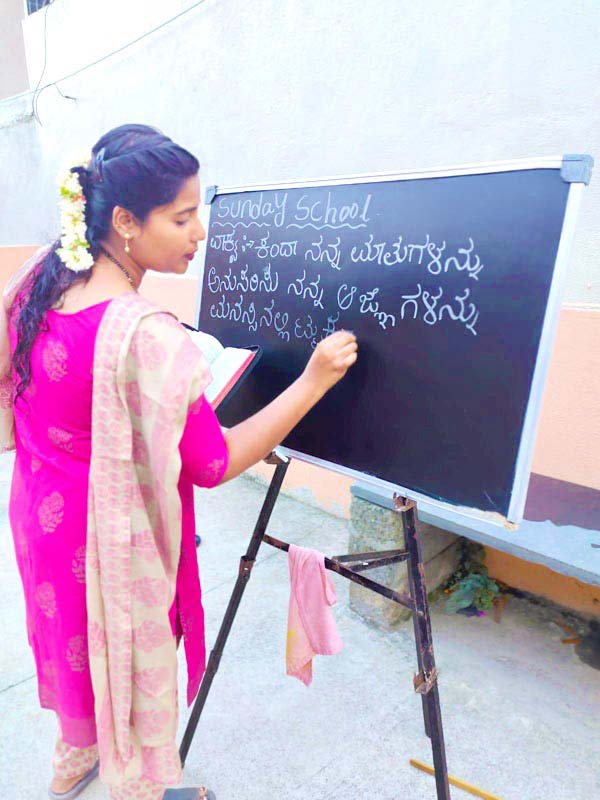 Sunday School
ವಾಕ್ಯ :- ಕಂದಾ ನನ್ನ ಮಾತುಗಳನ್ನು
ಅನುಸರಿಸು ನನ್ನ ಆಜ್ಞೆಗಳನ್ನು
ಮನಸ್ಸಿನಲ್ಲಿ